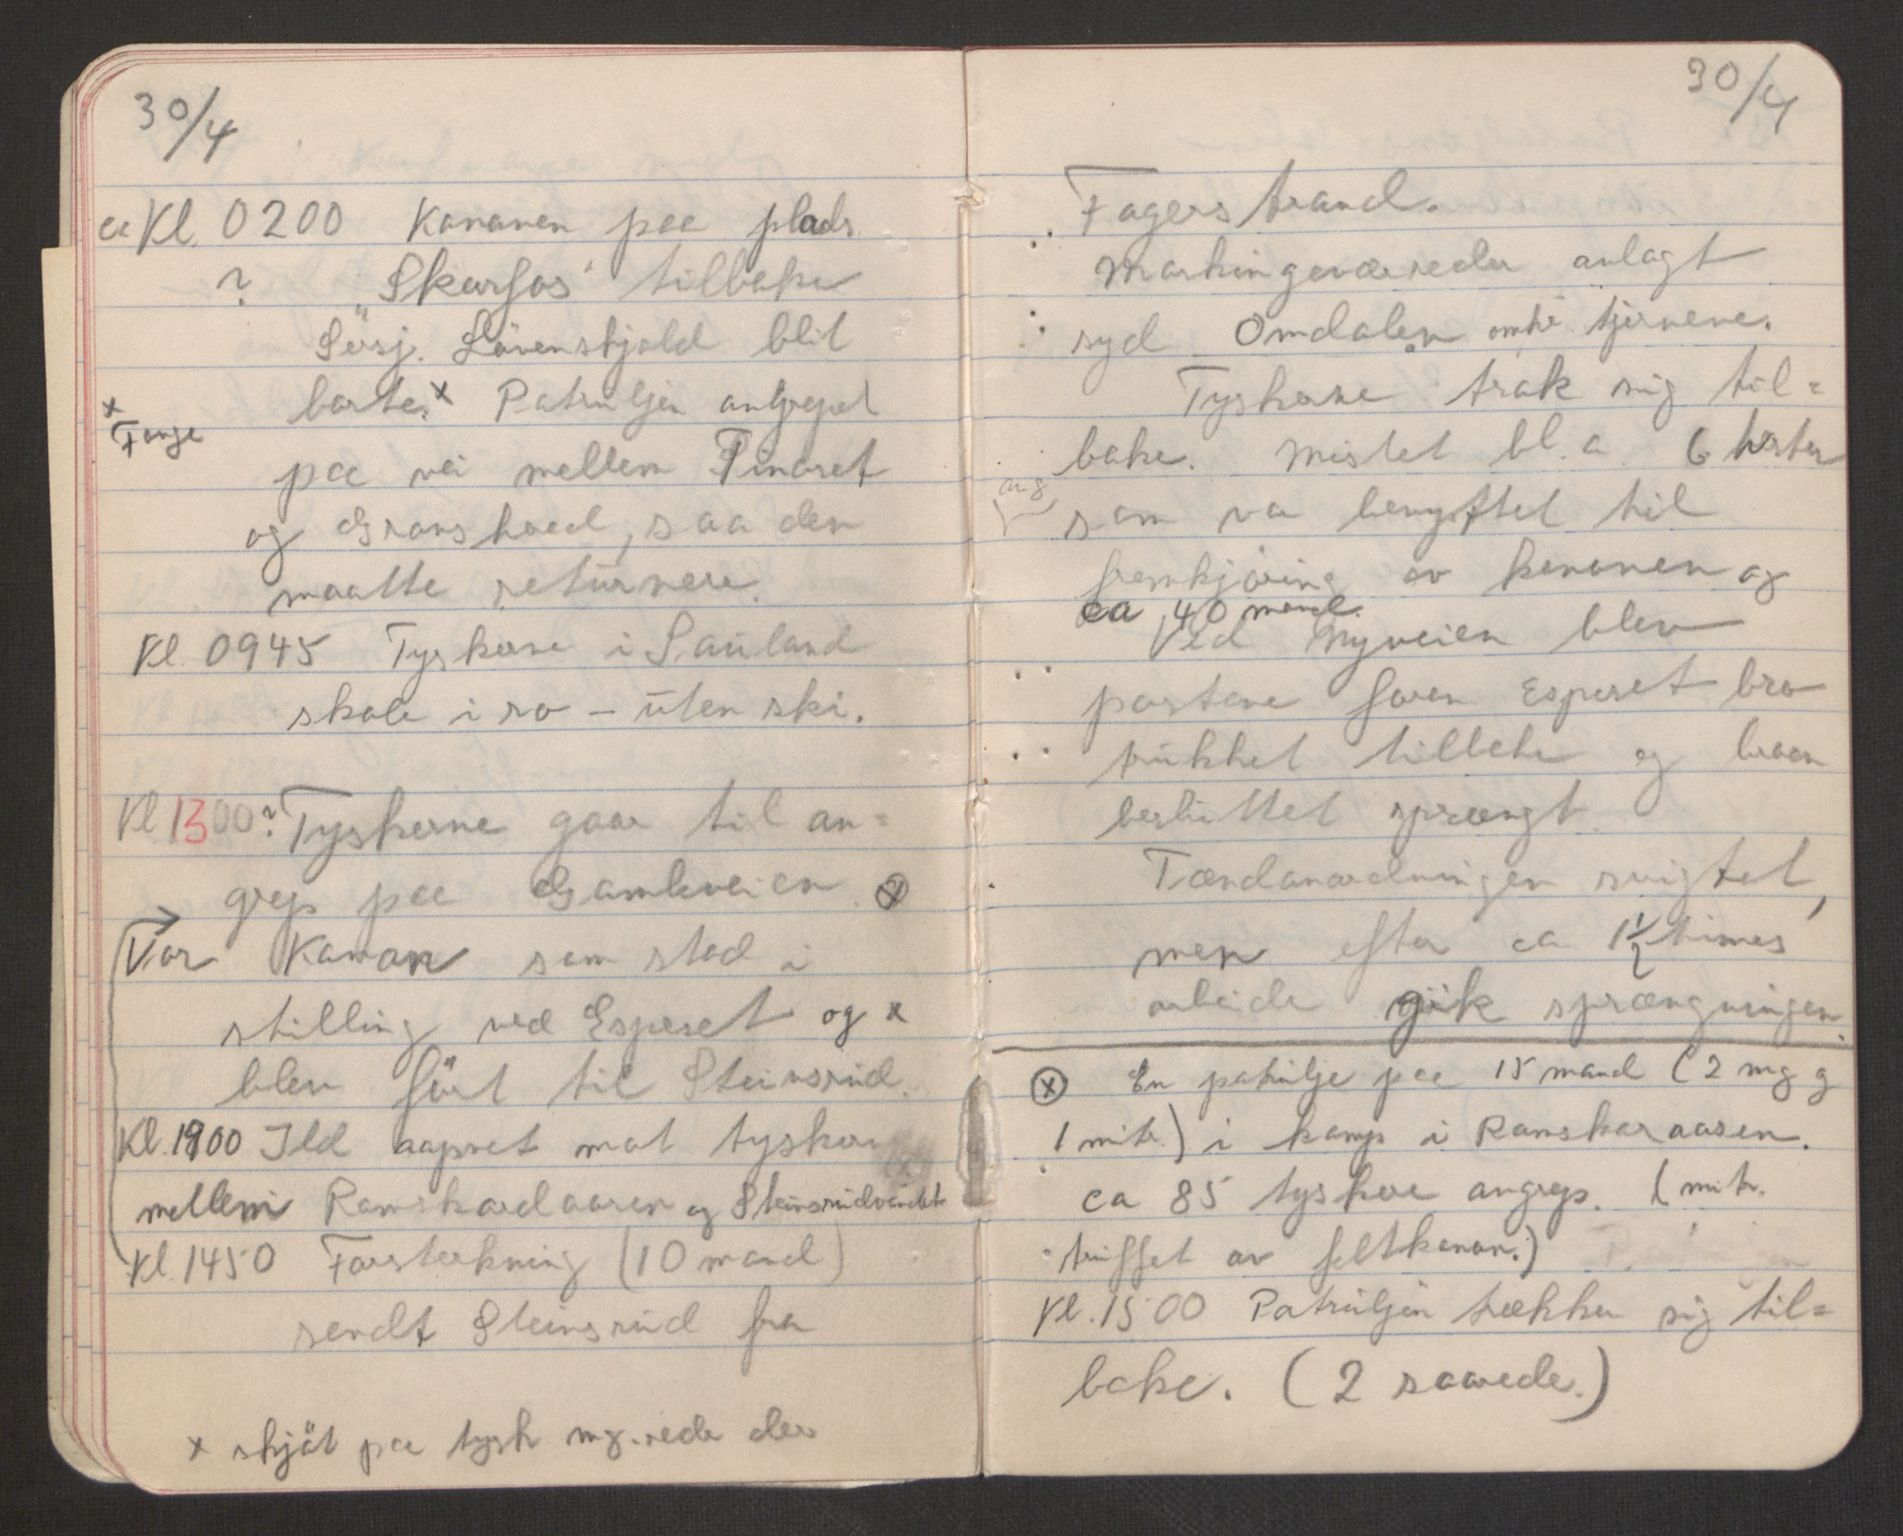 30/4
ca Kl. 0200 Kanonen paa plads.
? "Skarfos" tilbake
Sersj. Lövenskjold blit
borte.x Patruljen angrepet
x Fange
paa vei mellem Tinoset
og Gransherad, saa den
maatte returnere.
Kl. 0945 Tyskerne i Sauland
skole i ro – uten ski.
Kl 1300? Tyskerne gaar til an=
grep paa Gamleveien. ⓧ
Vor Kanon som stod i
stilling ved Espeset og x
blev fört til Steinsrud.
Kl. 1900 Ild aapnet mot tyskere
mellem Ramskardaasen og Steinsrudvandet
Kl. 1450 Forsterkning (10 mand)
sendt Steinsrud fra
x skjöt paa tysk mg.rede der
30/4
Fagerstrand.
Maskingeværreder anlagt
syd Omdalen omkr. tjernene.
Tyskerne trak sig til=
bake. Mistet bl.a. 6 hester
som var benyttet til
fremkjöring av kanonen og
ca 40 mand.
Ved Nyveien blev
postene foran Espeset bro
trukket tilbake og broen
besluttet sprængt.
Tændanordningen svigtet,
men efter ca 1½ times
arbeide gik sprængningen.
ⓧ En patrulje paa 15 mand (2 mg og
1 mitr.) i kamp i Ramskaraasen.
ca 85 tyskere angrep. (mitr.
truffet av feltkanon.)
Kl. 1500 Patruljen trækker sig til=
bake. (2 saarede.)